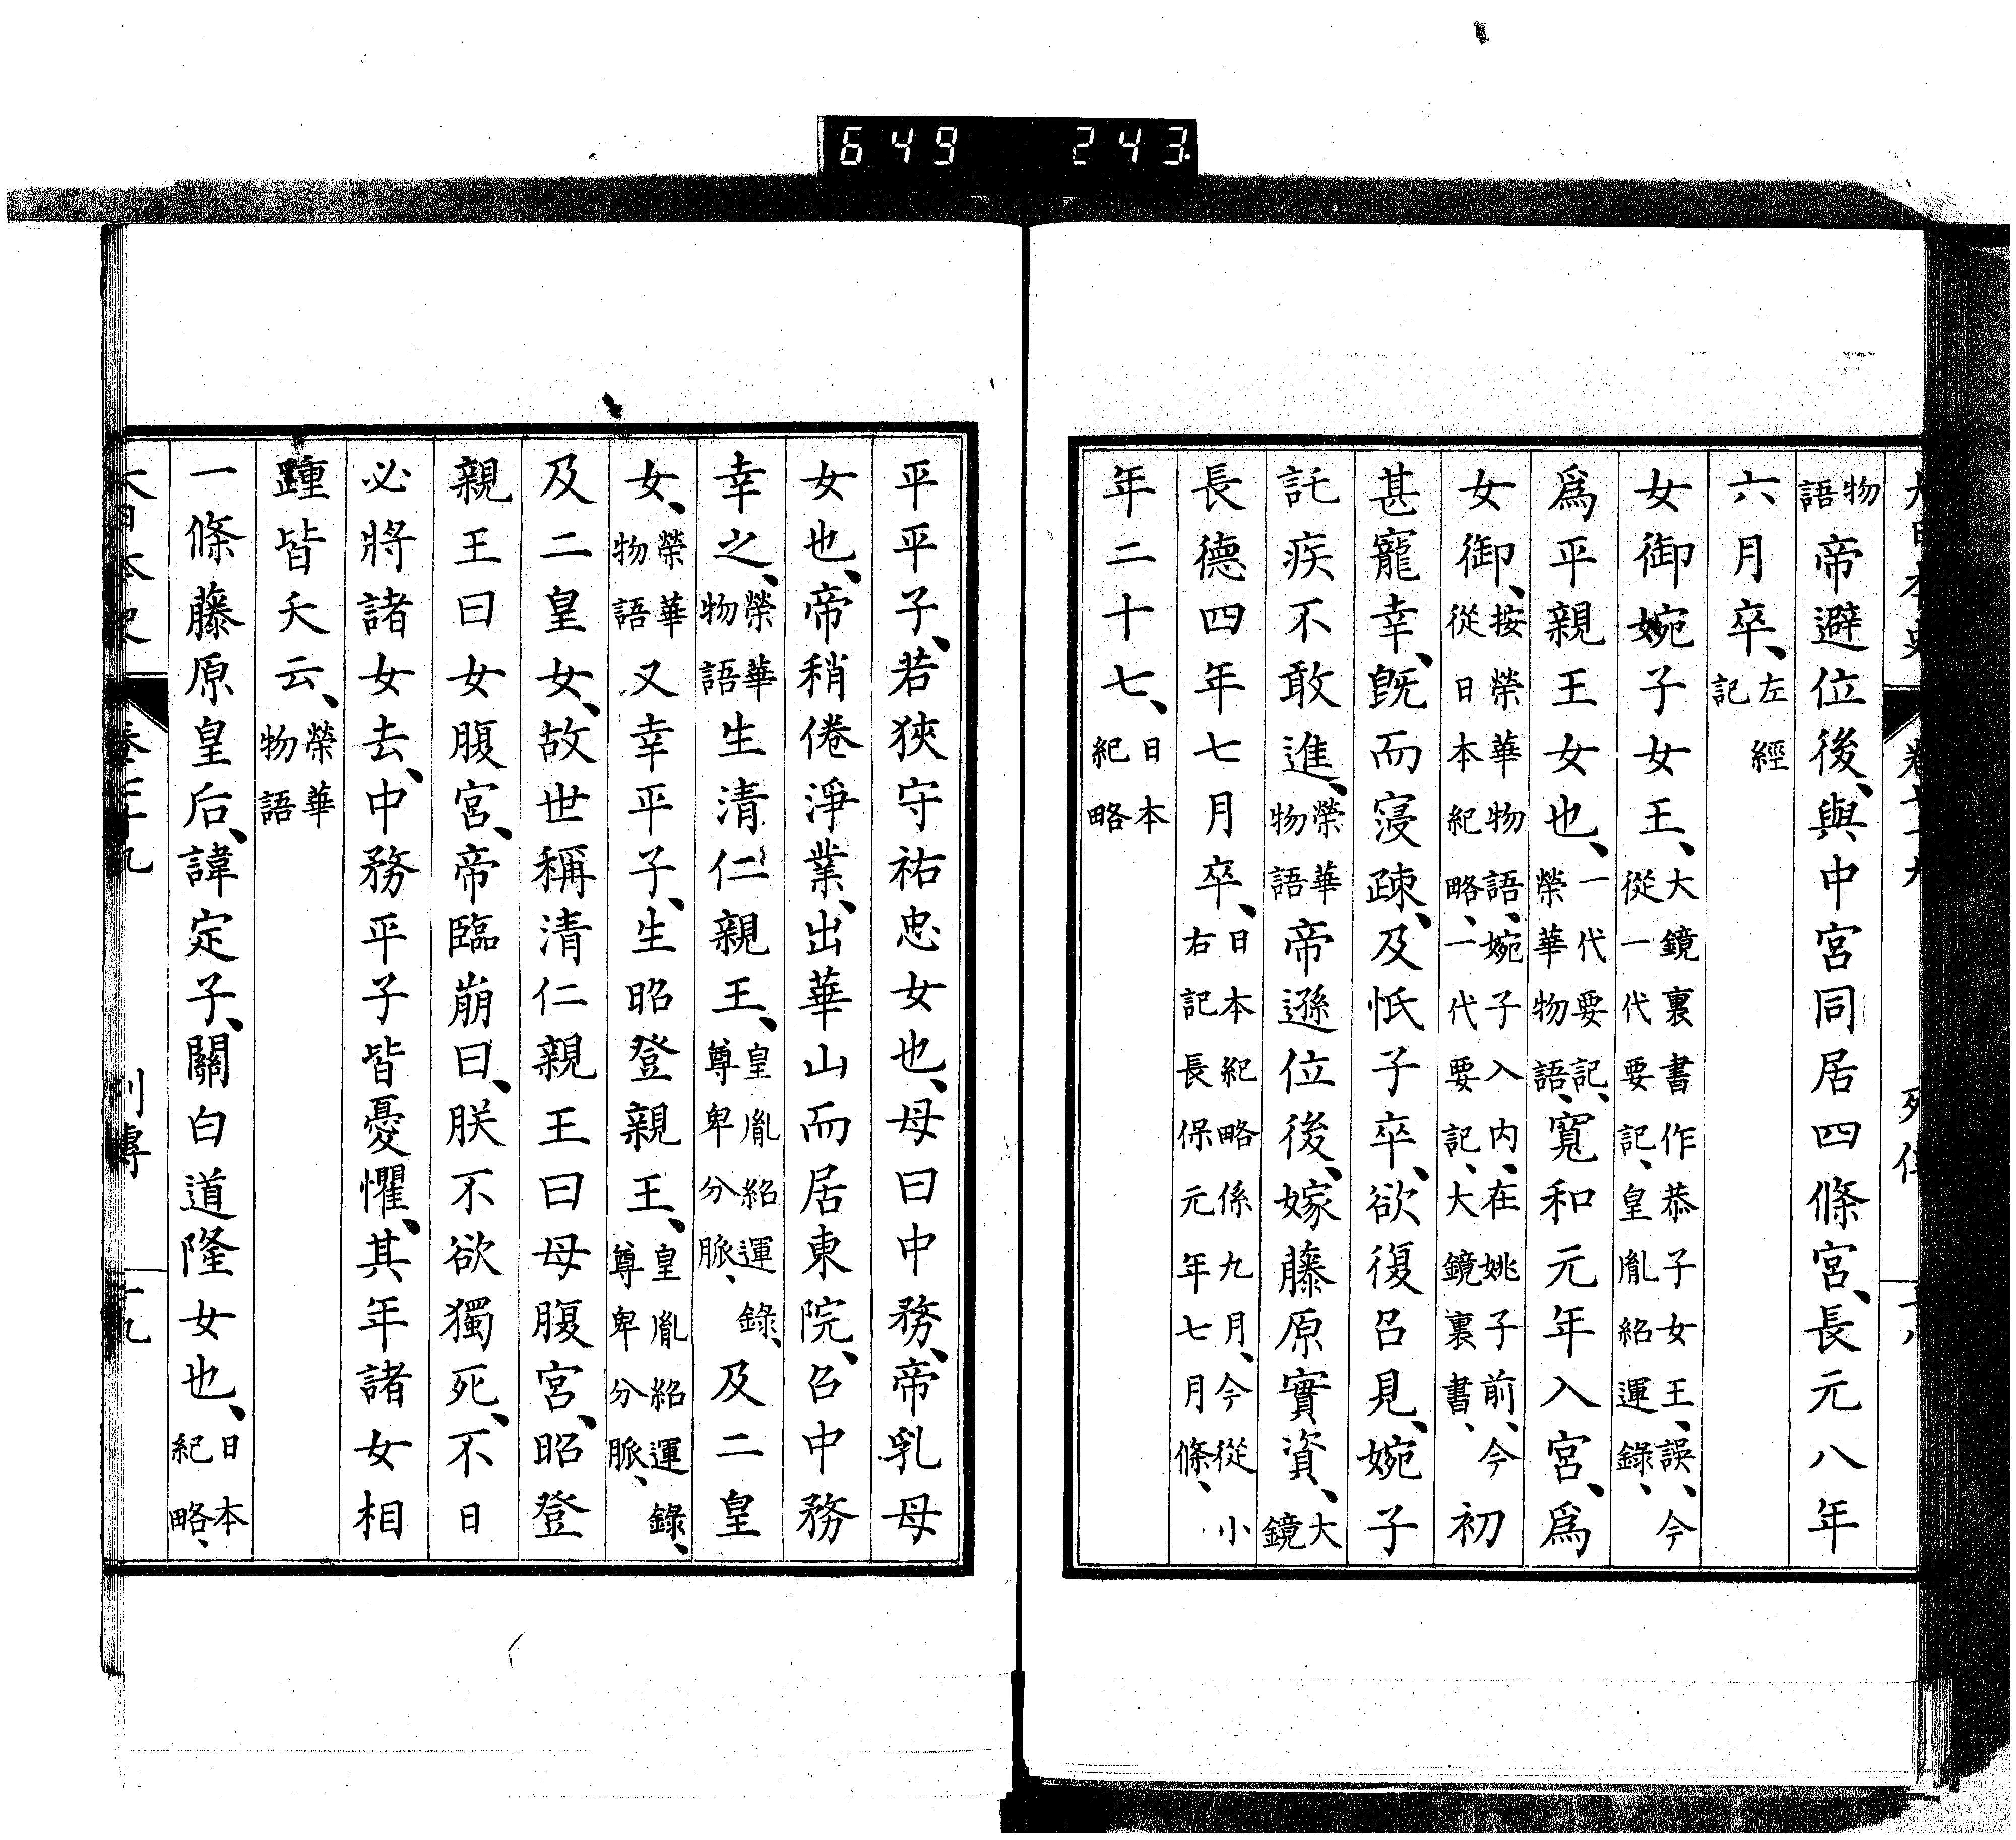 649 243
大日本史 卷七十九 列傳 十八
物語帝避位後、與中宮同居四條宮、長元八年
六月卒、左經記
女御婉子女王、大鏡裏書作恭子女王、誤、今從一代要記、皇胤紹運錄、
爲平親王女也、一代要記、榮華物語、寬和元年入宮、爲
女御、按榮華物語、婉子入內、在姚子前、今從日本紀略、一代要記、大鏡裏書、初
甚寵幸、既而寖疎、及忯子卒、欲復召見、婉子
託疾不敢進、榮華物語帝遜位後、嫁藤原實資、大鏡
長德四年七月卒、日本紀略係九月、今從小右記長保元年七月條、
年二十七、日本紀略
平平子、若狹守祐忠女也、母曰中務、帝乳母
女也、帝稍倦淨業、出華山而居東院、召中務
幸之、榮華物語生清仁親王、皇胤紹運錄、尊卑分脈、及二皇
女、榮華物語又幸平子、生昭登親王、皇胤紹運錄、尊卑分脈、
及二皇女、故世稱清仁親王曰母腹宮、昭登
親王曰女腹宮、帝臨崩曰、朕不欲獨死、不日
必將諸女去、中務平子皆憂懼、其年諸女相
踵皆夭云、榮華物語
一條藤原皇后、諱定子、關白道隆女也、日本紀略、
大日本史 卷七十九 列傳 十九